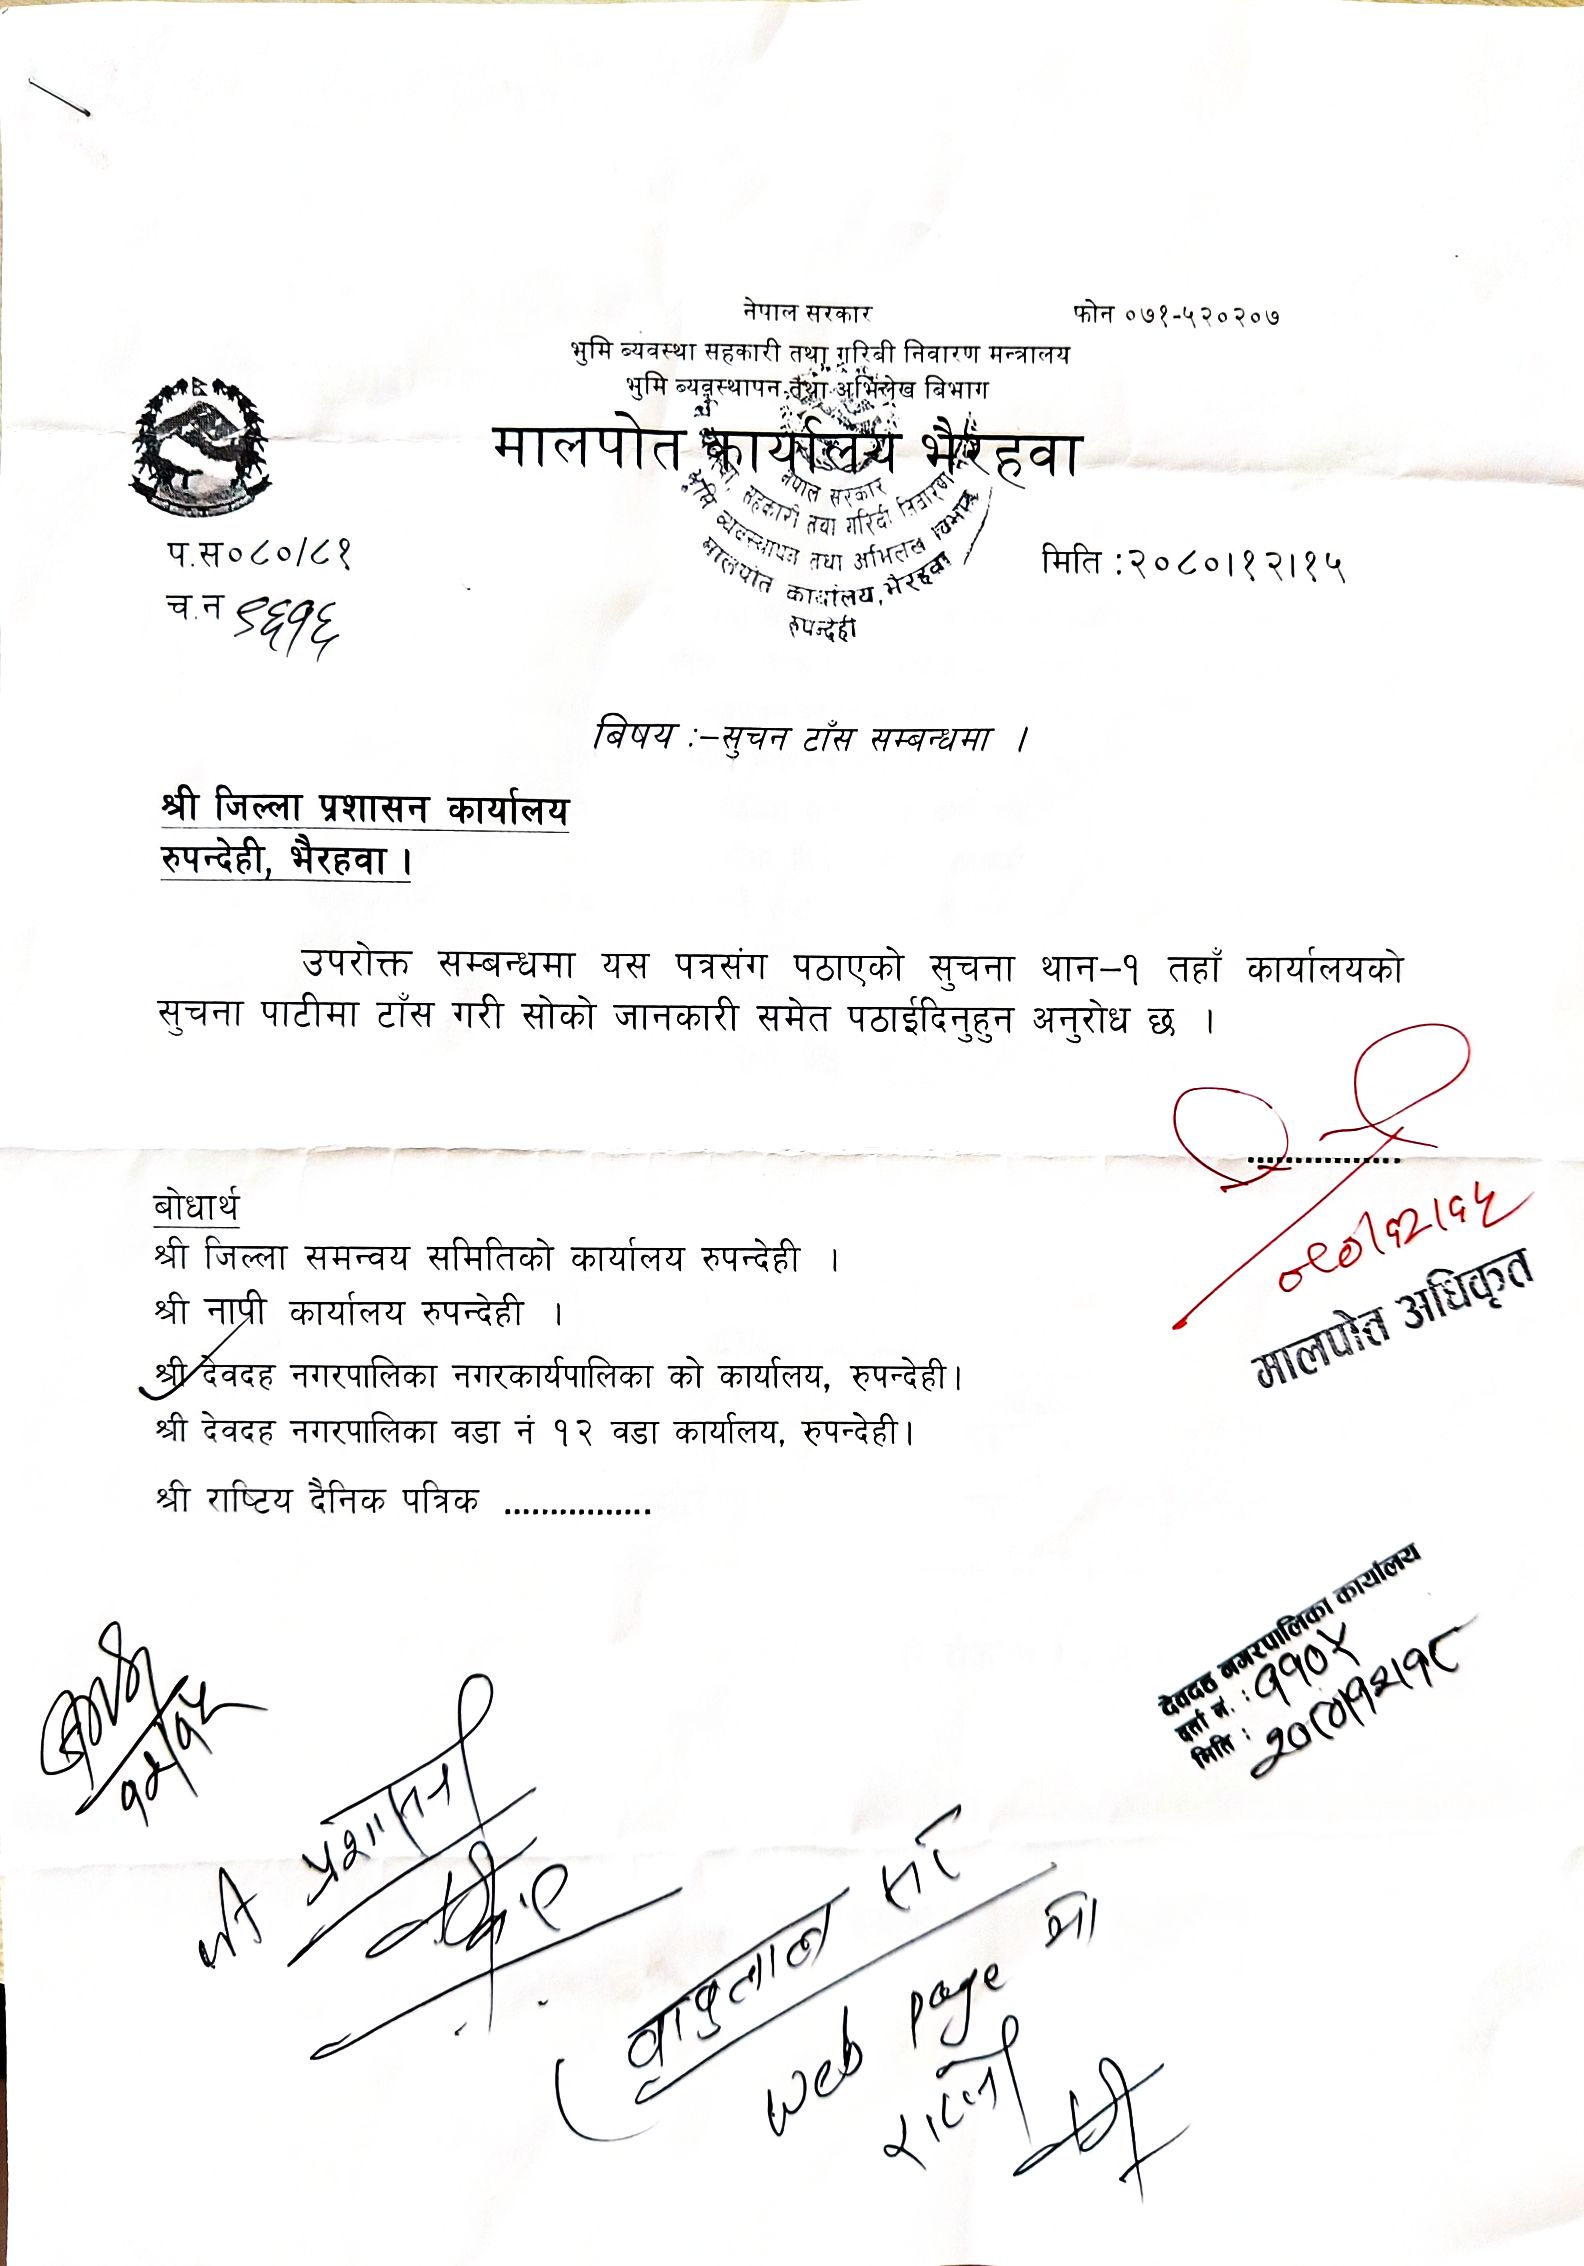 नेपाल सरकार
फोन ०७१-५२०२०७
भुमि ब्यवस्था सहकारी तथा गरिबी निवारण मन्त्रालय
भुमि ब्यवस्थापन तथा अभिलेख बिभाग
मालपोत कार्यालय भैरहवा
नेपाल सरकार
सहकारी तथा गरिबी निवारण
भूमि व्यवस्थापन तथा अभिलेख विभाग
मालपोत कार्यालय, भैरहवा
रुपन्देही
प.स०८०/८१
मिति :२०८०।१२।१५
च.न ९६१६
बिषय :-सुचन टाँस सम्बन्धमा ।
श्री जिल्ला प्रशासन कार्यालय
रुपन्देही, भैरहवा ।
उपरोक्त सम्बन्धमा यस पत्रसंग पठाएको सुचना थान-१ तहाँ कार्यालयको
सुचना पाटीमा टाँस गरी सोको जानकारी समेत पठाईदिनुहुन अनुरोध छ ।
................
मालपोत अधिकृत
बोधार्थ
श्री जिल्ला समन्वय समितिको कार्यालय रुपन्देही ।
श्री नापी कार्यालय रुपन्देही ।
श्री देवदह नगरपालिका नगरकार्यपालिका को कार्यालय, रुपन्देही।
श्री देवदह नगरपालिका वडा नं १२ वडा कार्यालय, रुपन्देही।
श्री राष्टिय दैनिक पत्रिक ................
देवदह नगरपालिका कार्यालय
दर्ता नं. : ११०५
मिति : २०८०।१२।१८
श्री प्रशासन
बाबुलाल सर
web page मा
राख्ने